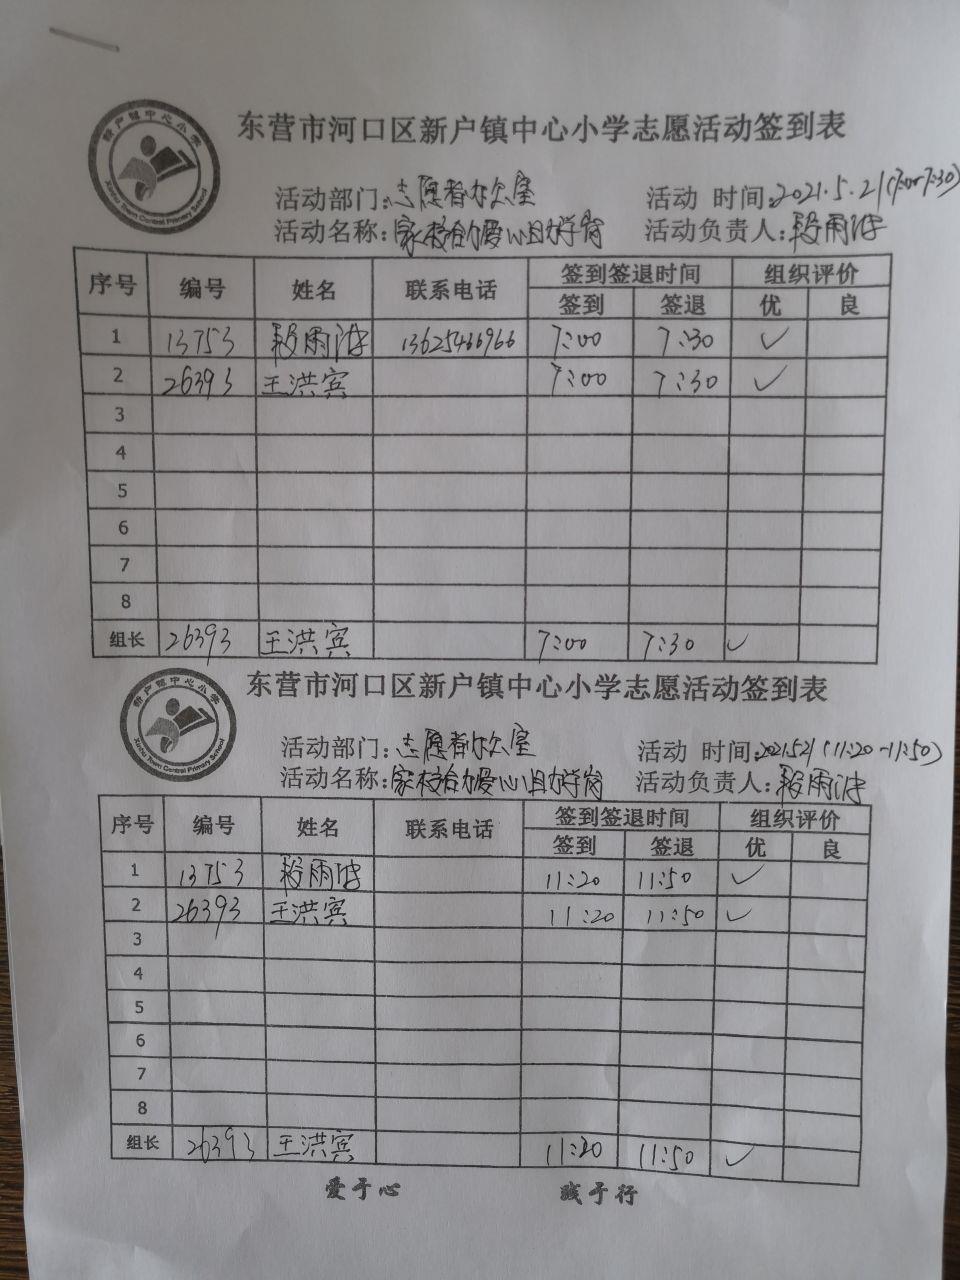 新户镇中心小学
Xinhu Town Central Primary School
东营市河口区新户镇中心小学志愿活动签到表
活动部门:志愿者办公室 活动 时间:2021.5.21(7:00-7:30)
活动名称:家校合力爱心助学岗 活动负责人:段雨
序号 编号 姓名 联系电话 签到签退时间 组织评价
签到 签退 优 良
1 13753 段雨 13625466966 7:00 7:30 ✓
2 26393 王洪宾 7:00 7:30 ✓
3
4
5
6
7
8
组长 26393 王洪宾 7:00 7:30 ✓
新户镇中心小学
Xinhu Town Central Primary School
东营市河口区新户镇中心小学志愿活动签到表
活动部门:志愿者办公室 活动 时间:2021.5.21(11:20-11:50)
活动名称:家校合力爱心助学岗 活动负责人:段雨
序号 编号 姓名 联系电话 签到签退时间 组织评价
签到 签退 优 良
1 13753 段雨 11:20 11:50 ✓
2 26393 王洪宾 11:20 11:50 ✓
3
4
5
6
7
8
组长 26393 王洪宾 11:20 11:50 ✓
爱于心 践于行